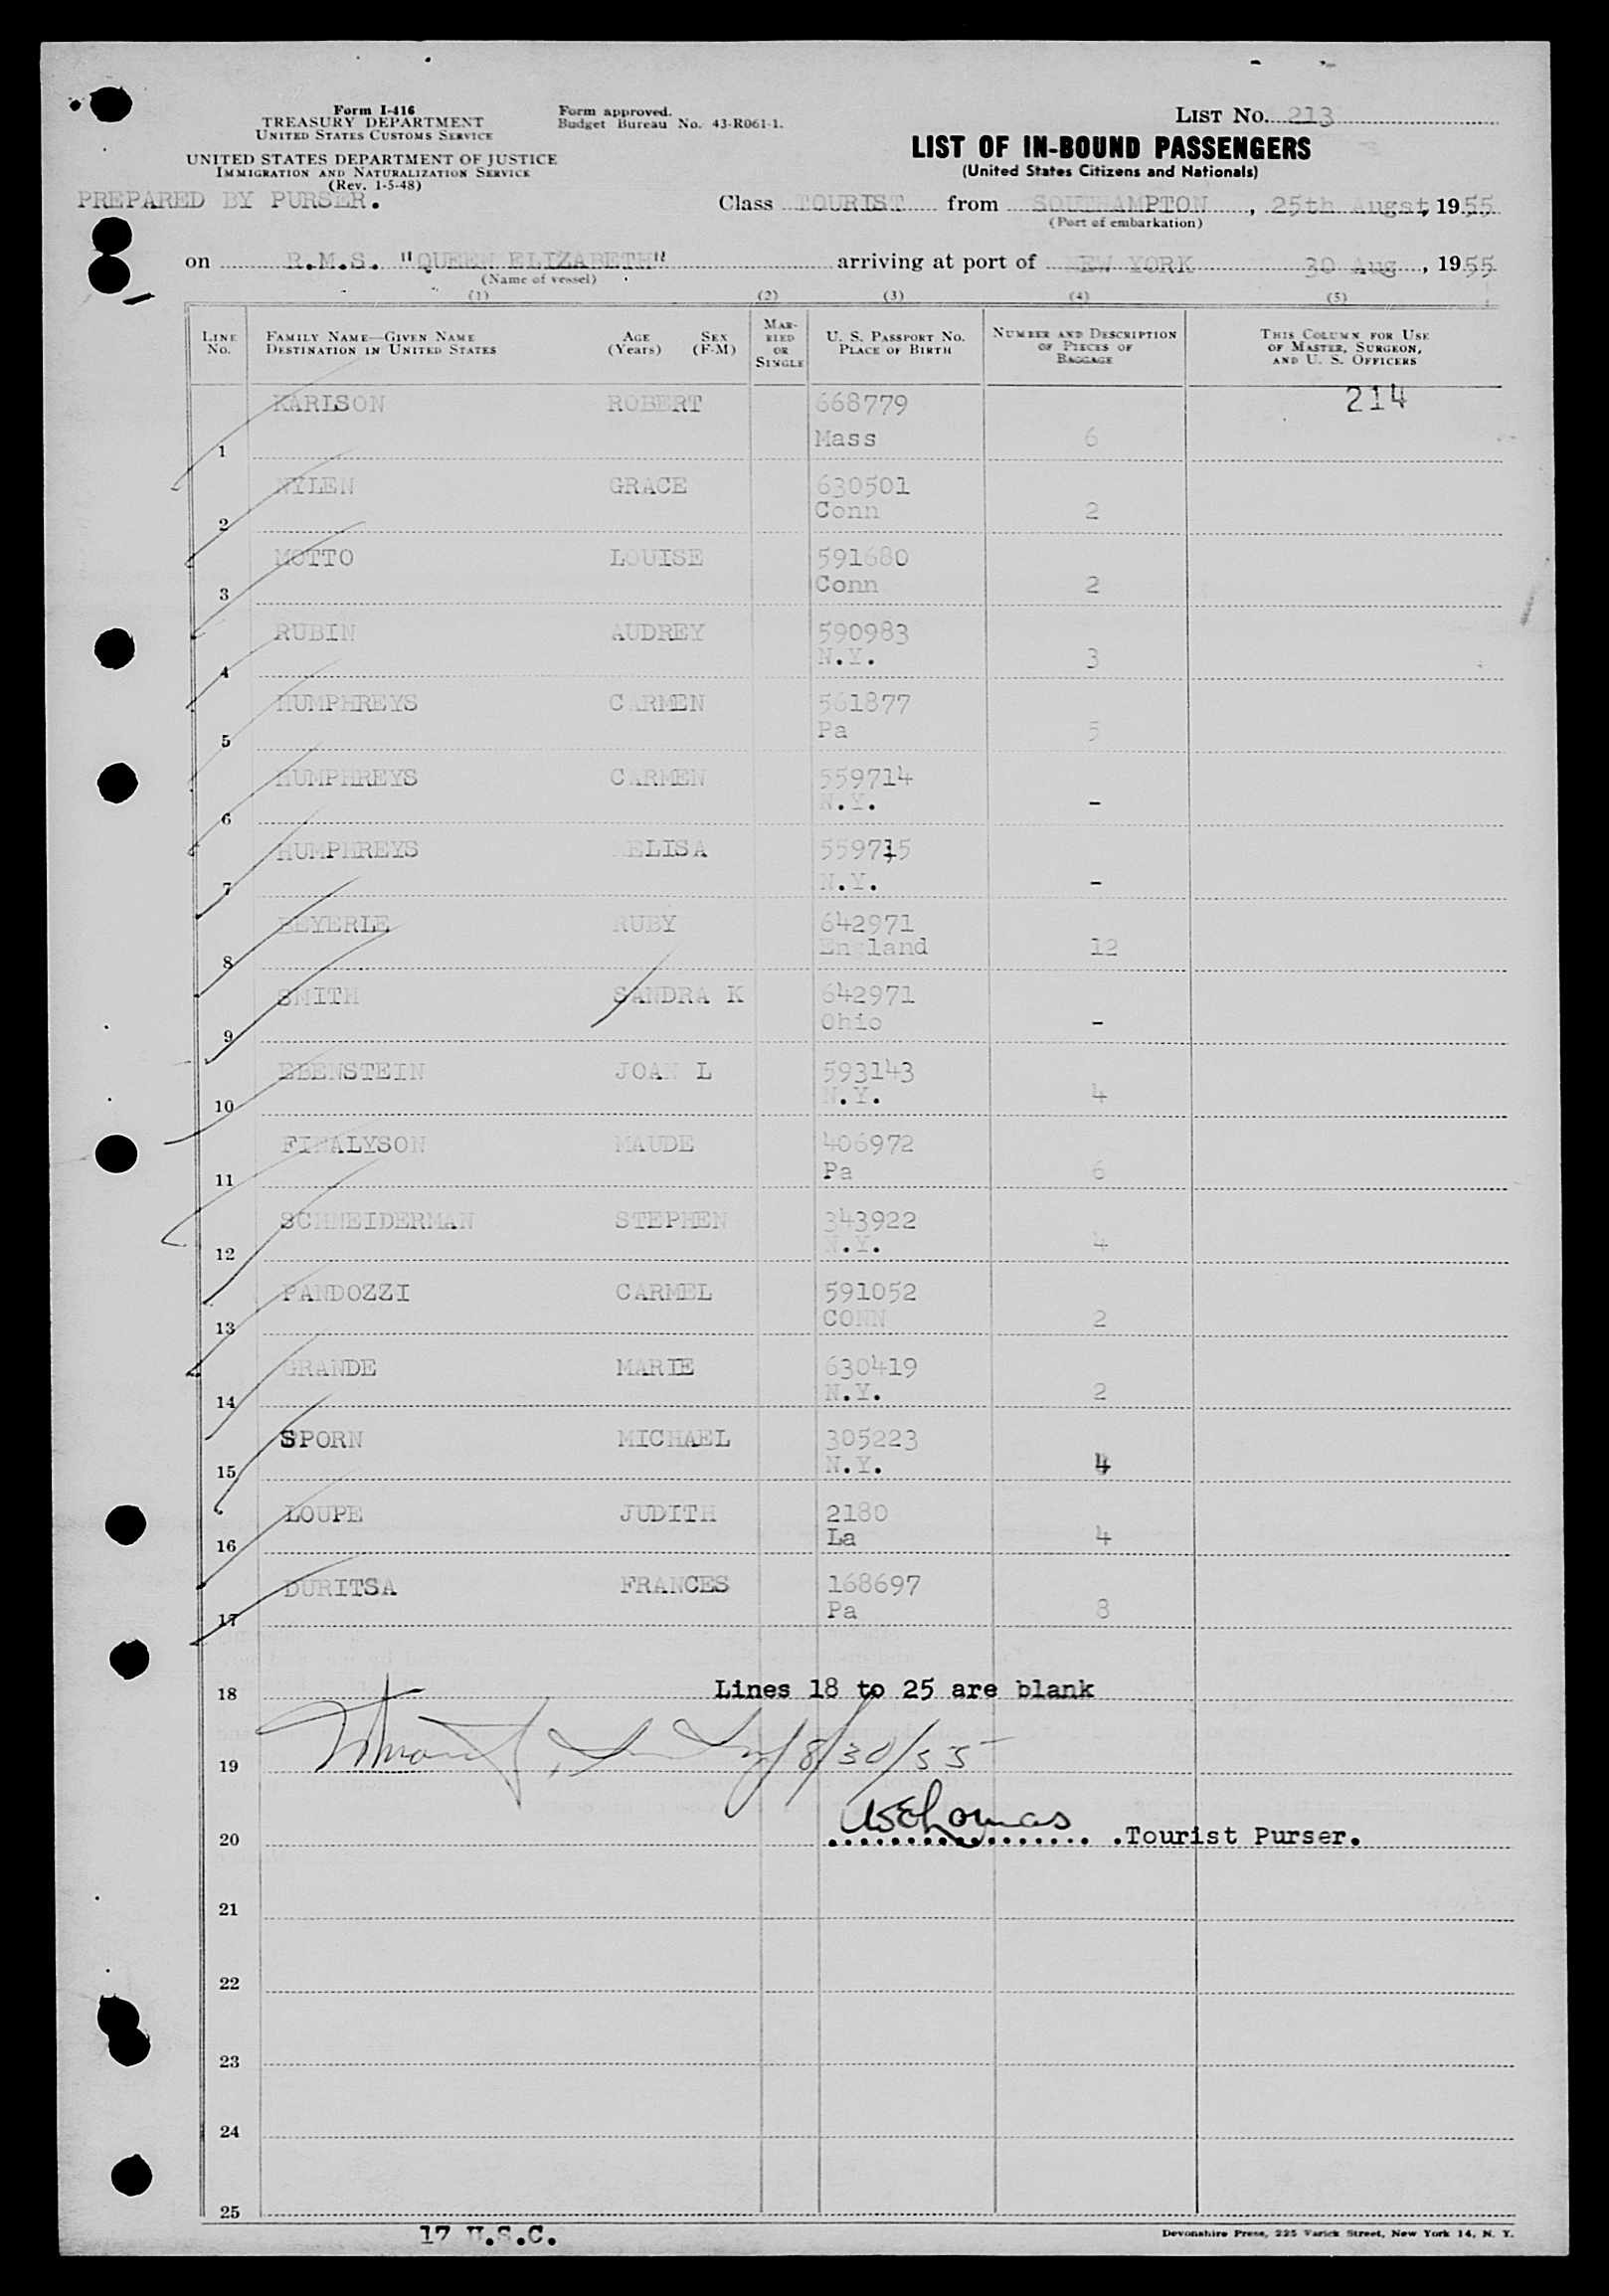 Form I-416
TREASURY DEPARTMENT
UNITED STATES CUSTOMS SERVICE
UNITED STATES DEPARTMENT OF JUSTICE
IMMIGRATION AND NATURALIZATION SERVICE
(Rev. 1-5-48)
PREPARED BY PURSER.
Form approved.
Budget Bureau No. 43-R061-1.
LIST No. 213
LIST OF IN-BOUND PASSENGERS
(United States Citizens and Nationals)
Class TOURIST from SOUTHAMPTON, 25th Augst, 1955
(Port of embarkation)
on R.M.S. "QUEEN ELIZABETH" arriving at port of NEW YORK 30 Aug, 1955
(Name of vessel)
(1) (2) (3) (4) (5)
LINE No. FAMILY NAME—GIVEN NAME DESTINATION IN UNITED STATES AGE (Years) SEX (F-M) MARRIED OR SINGLE U. S. PASSPORT No. PLACE OF BIRTH NUMBER AND DESCRIPTION OF PIECES OF BAGGAGE THIS COLUMN FOR USE OF MASTER, SURGEON, AND U. S. OFFICERS
KARLSON ROBERT 668779 214
1 Mass 6
NYLEN GRACE 630501
2 Conn 2
MOTTO LOUISE 591680
3 Conn 2
RUBIN AUDREY 590983
4 N.Y. 3
HUMPHREYS CARMEN 561877
5 Pa 5
HUMPHREYS CARMEN 559714
6 N.Y. -
HUMPHREYS ELISA 559715
7 N.Y. -
BEYERLE RUBY 642971
8 England 12
SMITH SANDRA K 642971
9 Ohio -
EBENSTEIN JOAN L 593143
10 N.Y. 4
FINALYSON MAUDE 406972
11 Pa 6
SCHNEIDERMAN STEPHEN 343922
12 N.Y. 4
PANDOZZI CARMEL 591052
13 CONN 2
GRANDE MARIE 630419
14 N.Y. 2
SPORN MICHAEL 305223
15 N.Y. 4
LOUPE JUDITH 2180
16 La 4
DURITSA FRANCES 168697
17 Pa 8
18 Lines 18 to 25 are blank
19 8/30/55
20 .Tourist Purser.
21
22
23
24
25
17 U.S.C.
Devonshire Press, 225 Varick Street, New York 14, N. Y.